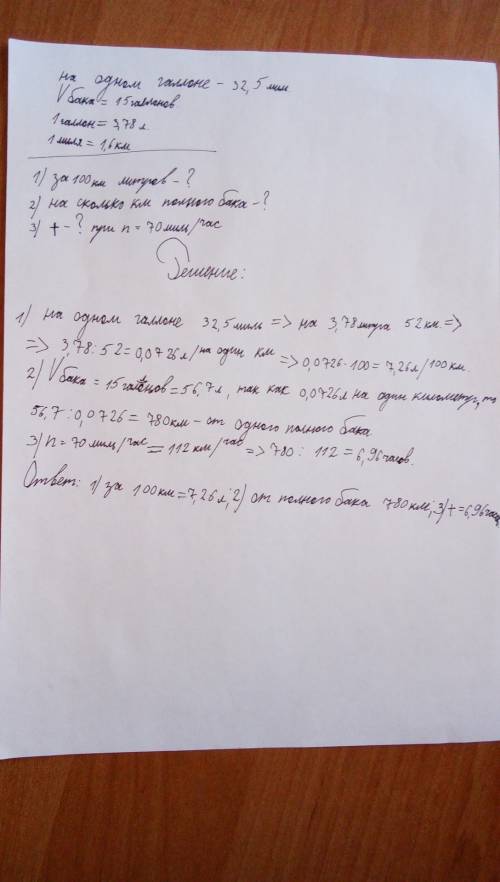 на одном галлоне - 32,5 мил
Vбака = 15 галлонов
1 галлон = 3,78 л
1 миля = 1,6 км
1) за 100 км литров - ?
2) на сколько км полного бака - ?
3) t - ? при n = 70 мил/час
Решение:
1) на одном галлоне 32,5 миль => на 3,78 литра 52 км. =>
=> 3,78 : 52 = 0,0726 л/на один км => 0,0726 · 100 = 7,26 л/100 км.
2) Vбака = 15 галлонов = 56,7 л, так как 0,0726 л на один километр, то
56,7 : 0,0726 = 780 км - от одного полного бака
3) n = 70 мил/час = 112 км/час => 780 : 112 = 6,96 часов.
Ответ: 1) за 100 км = 7,26 л; 2) от полного бака 780 км; 3) t = 6,96 часа